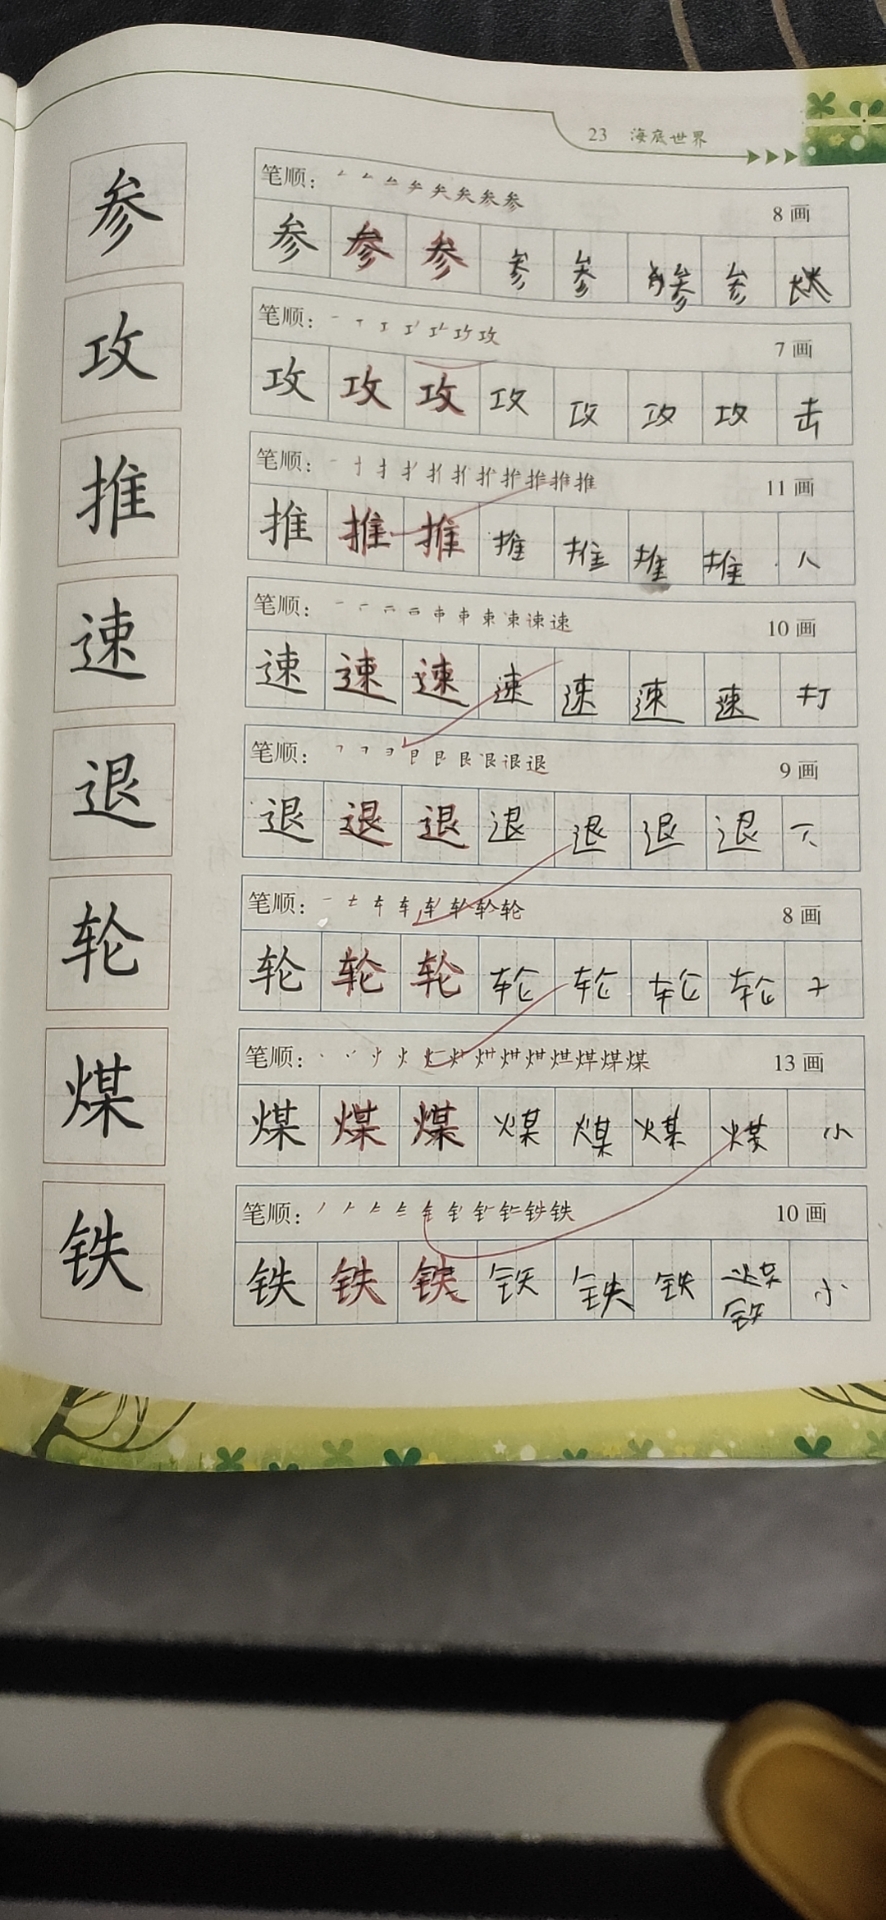 23 海底世界
参
笔顺： 8画
参 参 参 参 参 参 参
攻
笔顺： 7画
攻 攻 攻 攻 攻 攻 攻 击
推
笔顺： 11画
推 推 推 推 推 推 推 人
速
笔顺： 10画
速 速 速 速 速 速 速 打
退
笔顺： 9画
退 退 退 退 退 退 退
轮
笔顺： 8画
轮 轮 轮 轮 轮 轮 轮
煤
笔顺： 13画
煤 煤 煤 煤 煤 煤 煤 小
铁
笔顺： 10画
铁 铁 铁 铁 铁 铁 煤 小
铁